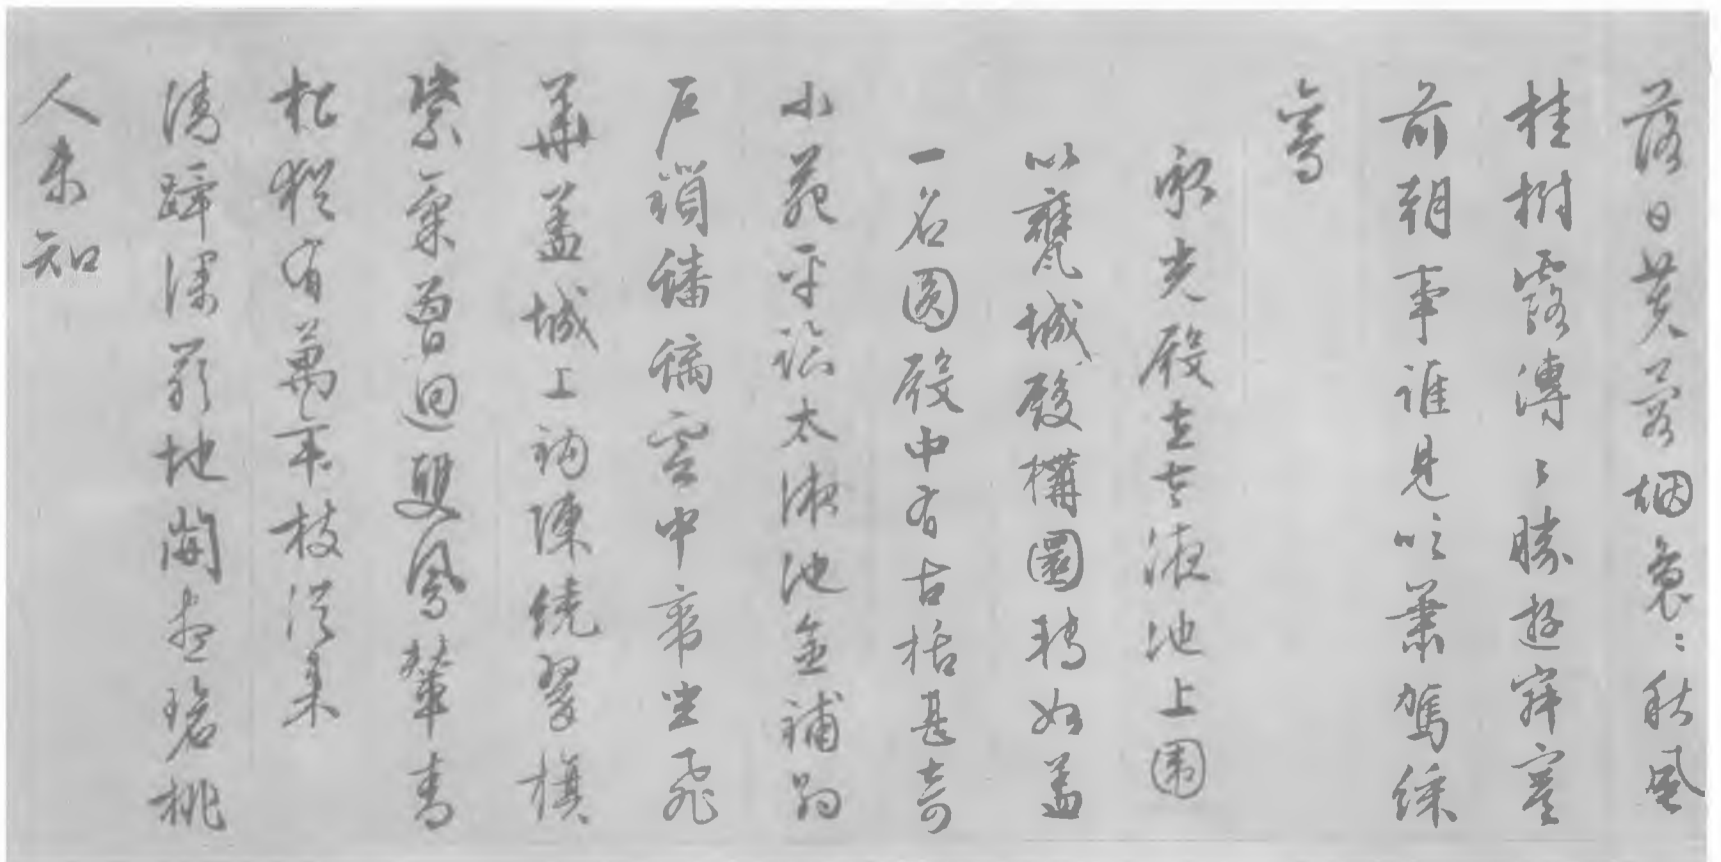 落日芙蓉烟裊〻秋風
桂樹露漙〻勝遊寂寞
前朝事誰見吹簫駕綵
鸞
承光殿在太液池上围
以甕城殿構圜轉如盖
一名圆殿中有古栝甚奇
小苑平臨太液池金鋪約
戶鎖蟠螭雲中帝坐飛
華盖城上鈎陳繞翠旗
紫氣曽迴雙鳳輦青
松猶有萬年枝從来
清蹕深嚴地開盡碧桃
人未知